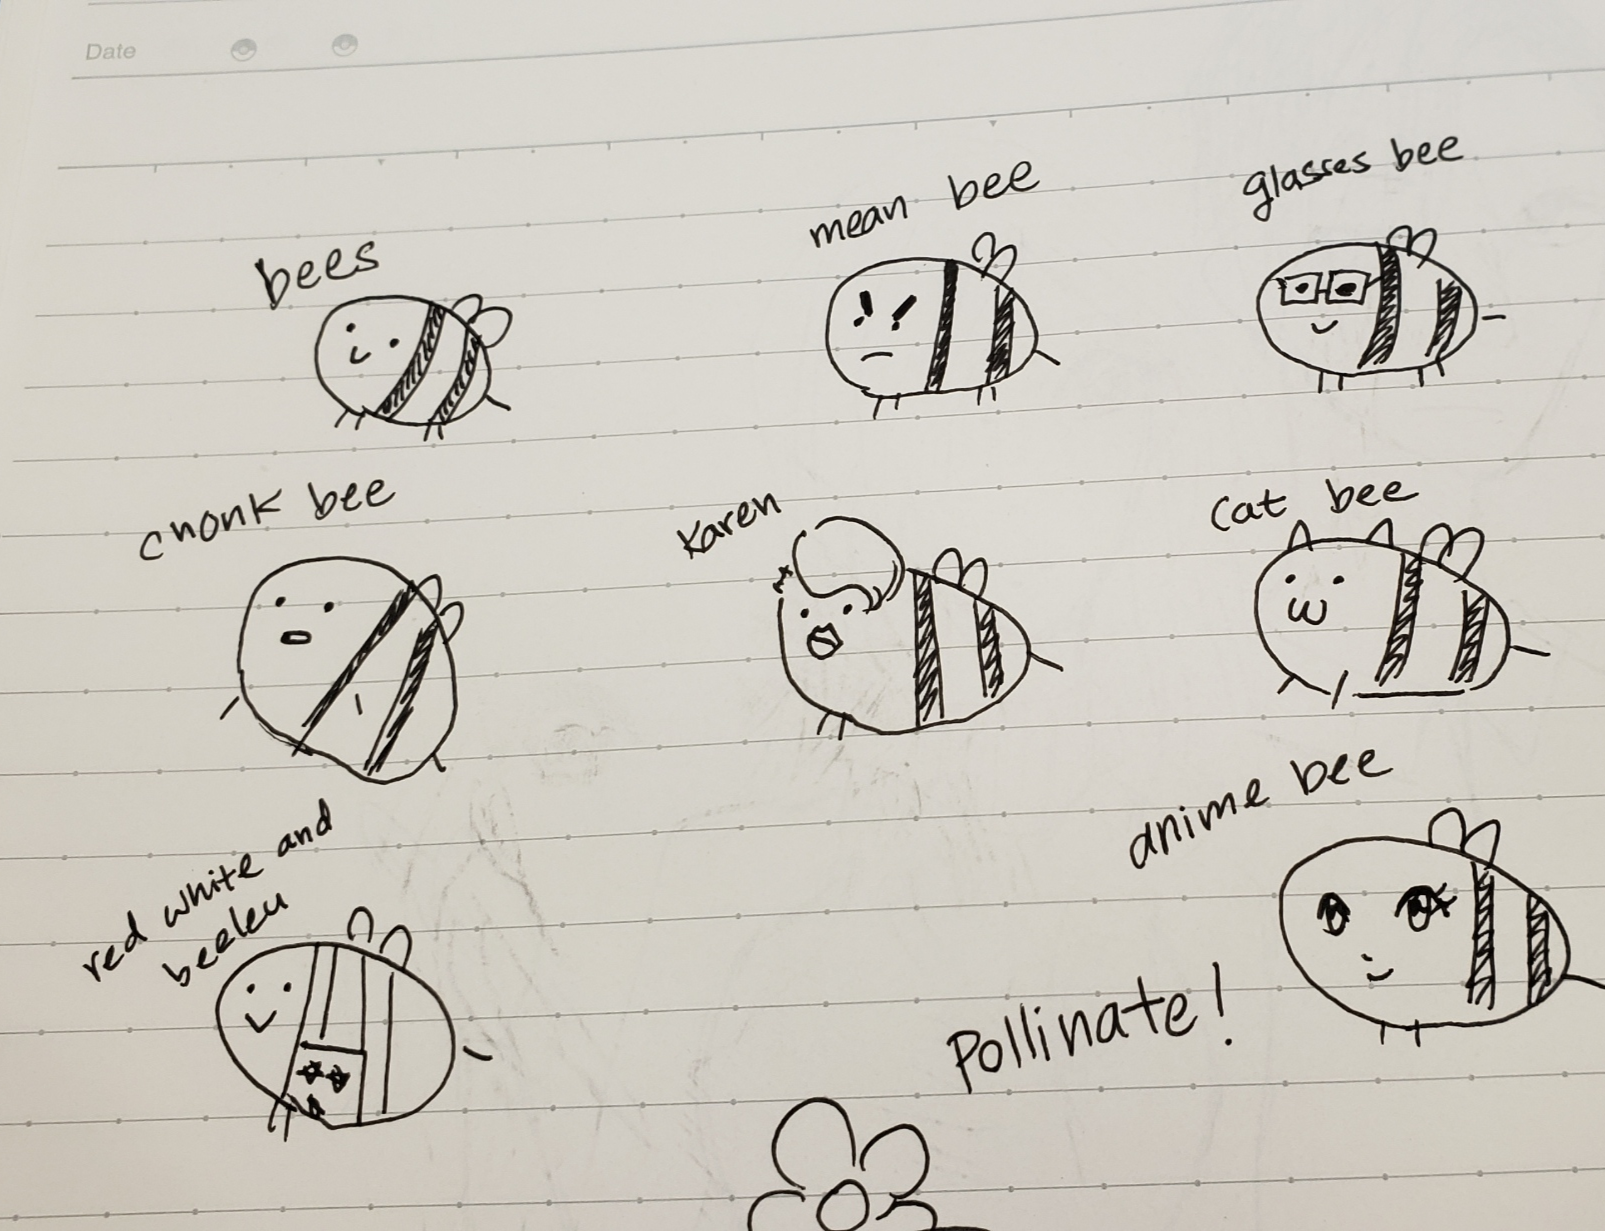 Date
bees
mean bee
glasses bee
chonk bee
Karen
cat bee
red white and
beeleu
anime bee
Pollinate!